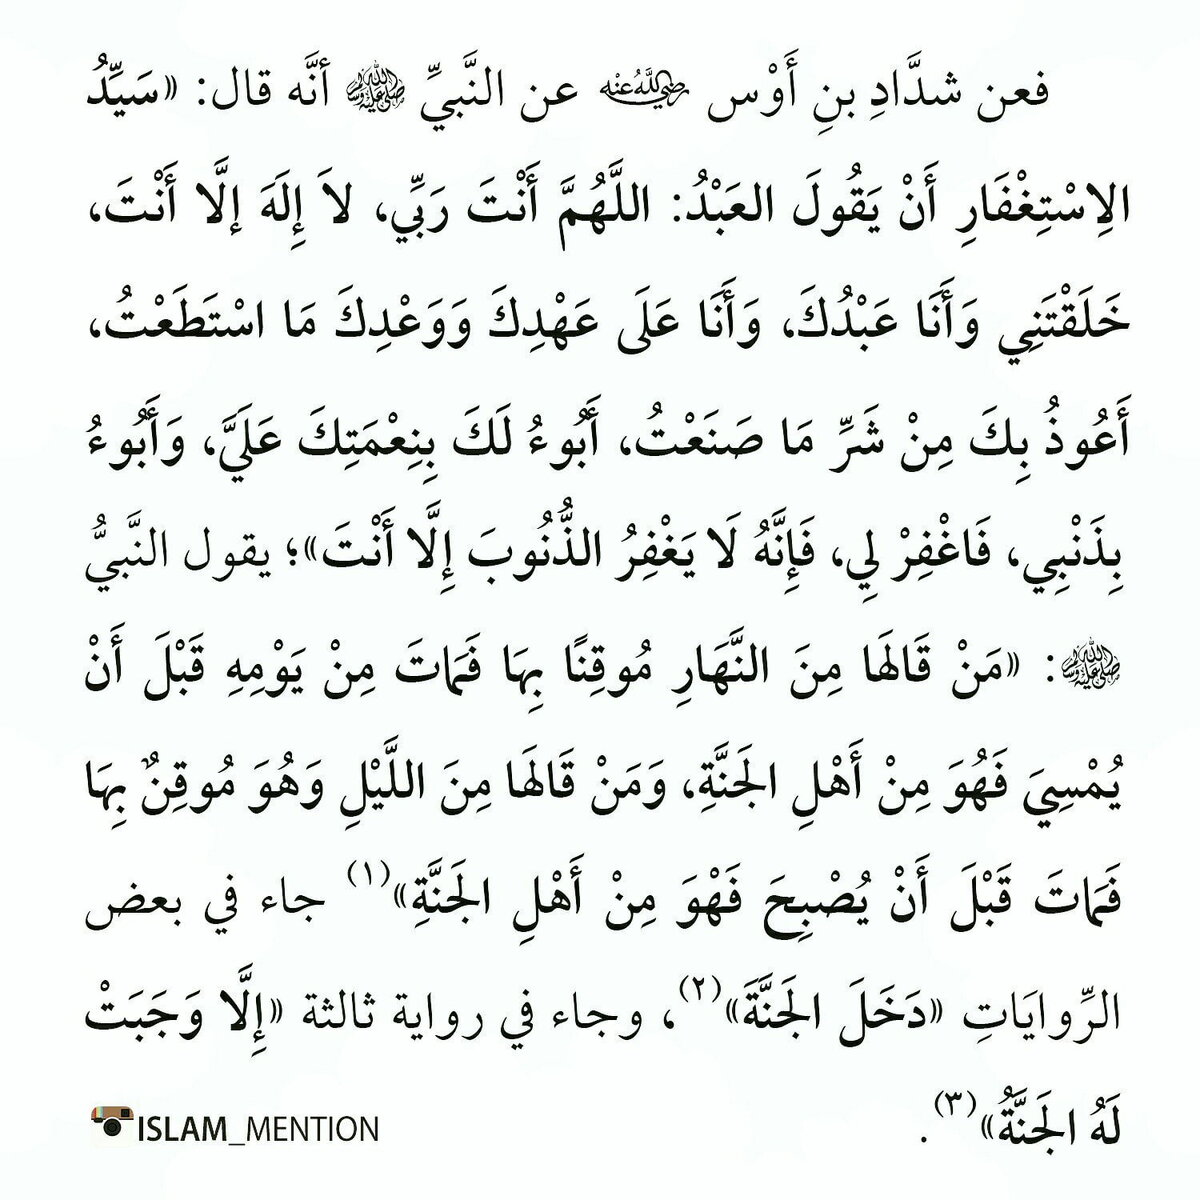 فعن شدَّادِ بنِ أَوْس رضي الله عنه عن النَّبيِّ ﷺ أنَّه قال: «سَيِّدُ
الِاسْتِغْفَارِ أَنْ يَقُولَ العَبْدُ: اللَّهُمَّ أَنْتَ رَبِّي، لاَ إِلَهَ إلَّا أَنْتَ،
خَلَقْتَنِي وَأَنَا عَبْدُكَ، وَأَنَا عَلَى عَهْدِكَ وَوَعْدِكَ مَا اسْتَطَعْتُ،
أَعُوذُ بِكَ مِنْ شَرِّ مَا صَنَعْتُ، أَبُوءُ لَكَ بِنِعْمَتِكَ عَلَيَّ، وَأَبُوءُ
بِذَنْبِي، فَاغْفِرْ لِي، فَإِنَّهُ لَا يَغْفِرُ الذُّنُوبَ إِلَّا أَنْتَ»؛ يقول النَّبيُّ
ﷺ: «مَنْ قَالَهَا مِنَ النَّهَارِ مُوقِنًا بِهَا فَمَاتَ مِنْ يَوْمِهِ قَبْلَ أَنْ
يُمْسِيَ فَهُوَ مِنْ أَهْلِ الجَنَّةِ، وَمَنْ قَالَهَا مِنَ اللَّيْلِ وَهُوَ مُوقِنٌ بِهَا
فَمَاتَ قَبْلَ أَنْ يُصْبِحَ فَهْوَ مِنْ أَهْلِ الجَنَّةِ»(١) جاء في بعض
الرِّوايَاتِ «دَخَلَ الجَنَّةَ»(٢)، وجاء في رواية ثالثة «إِلَّا وَجَبَتْ
لَهُ الجَنَّةُ»(٣).
ISLAM_MENTION